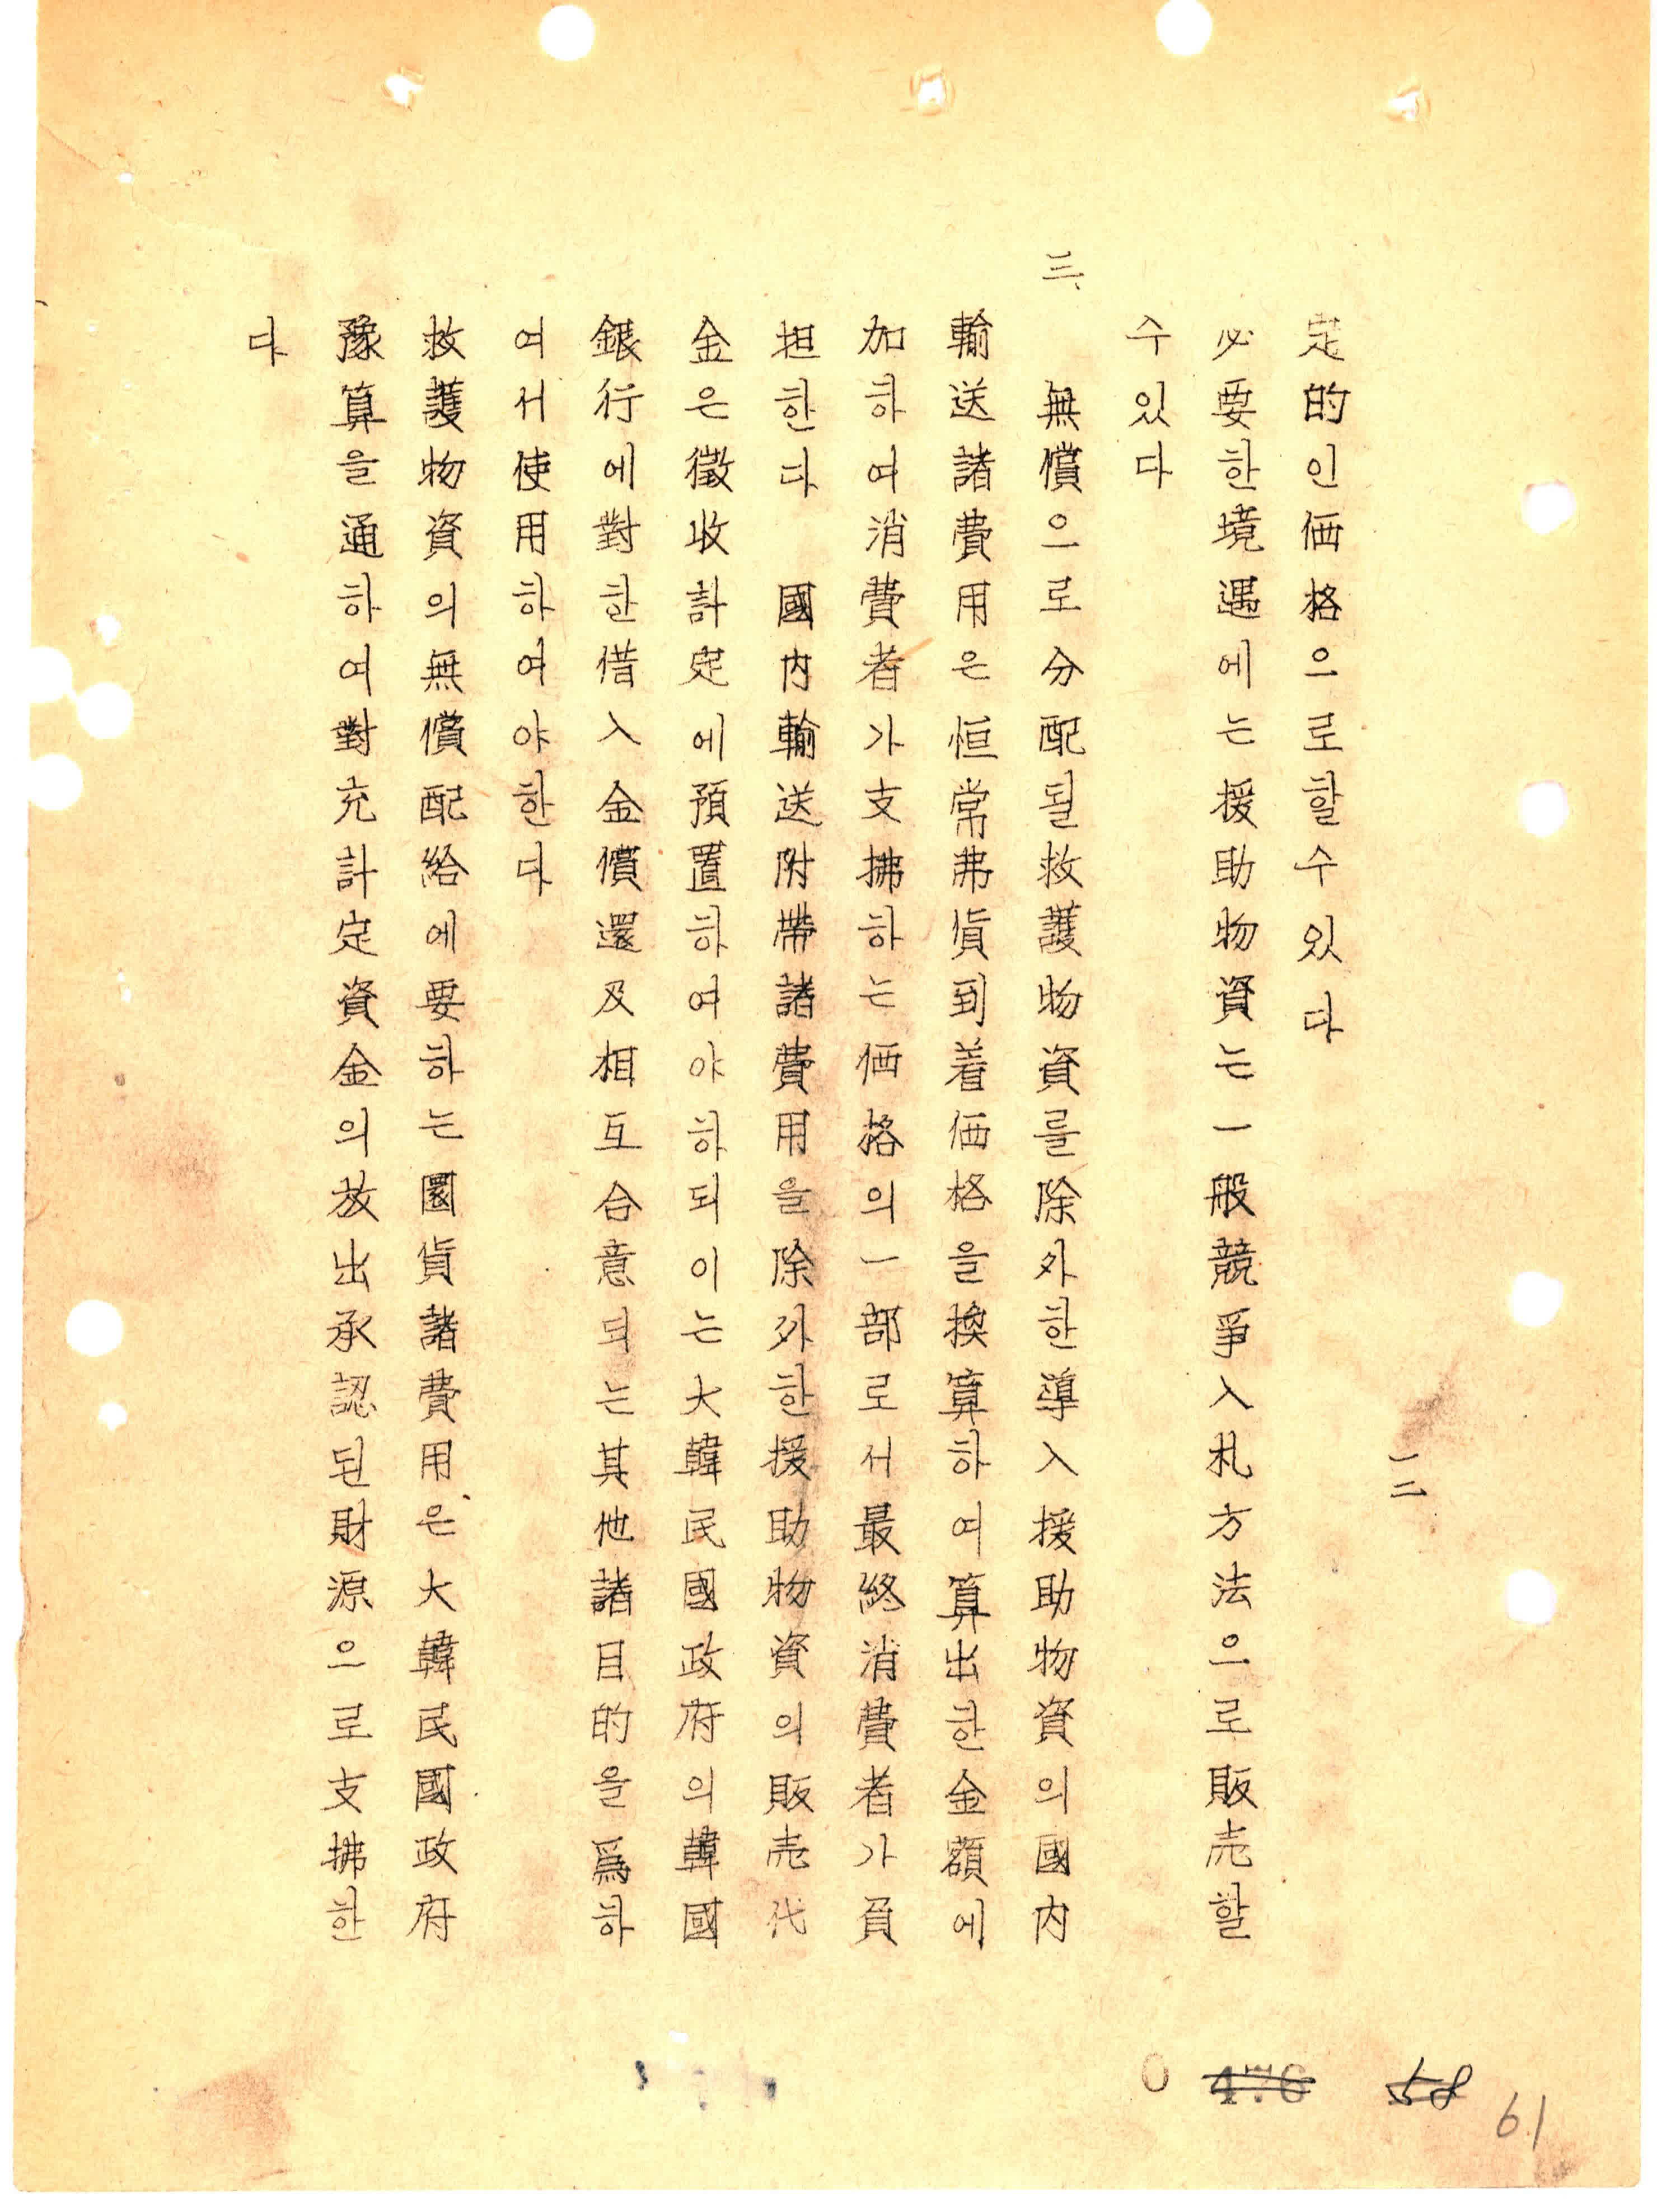 一二
定的인価格으로할수있다
必要한境遇에는援助物資는一般競爭入札方法으로販売할
수있다
三、無償으로分配될救護物資를除外한導入援助物資의國內
輸送諸費用은恒常弗貨到着価格을換算하여算出한金額에
加하여消費者가支拂하는価格의一部로서最終消費者가負
担한다 國內輸送附帶諸費用을除外한援助物資의販売代
金은徵收計定에預置하여야하되이는大韓民國政府의韓國
銀行에對한借入金償還及相互合意되는其他諸目的을爲하
여서使用하여야한다
救護物資의無償配給에要하는圜貨諸費用은大韓民國政府
豫算을通하여對充計定資金의放出承認된財源으로支拂한
다
58
61